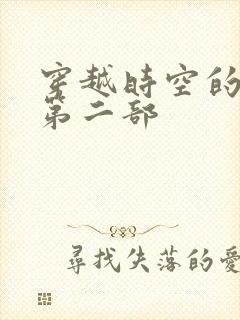 穿越時空的
第二部
尋找失落的愛